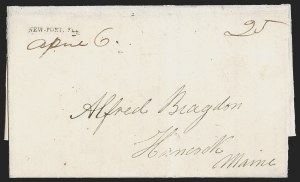 NEW-PORT, Fl.
April 6. 25
Alfred Bragdon
Hancock
Maine